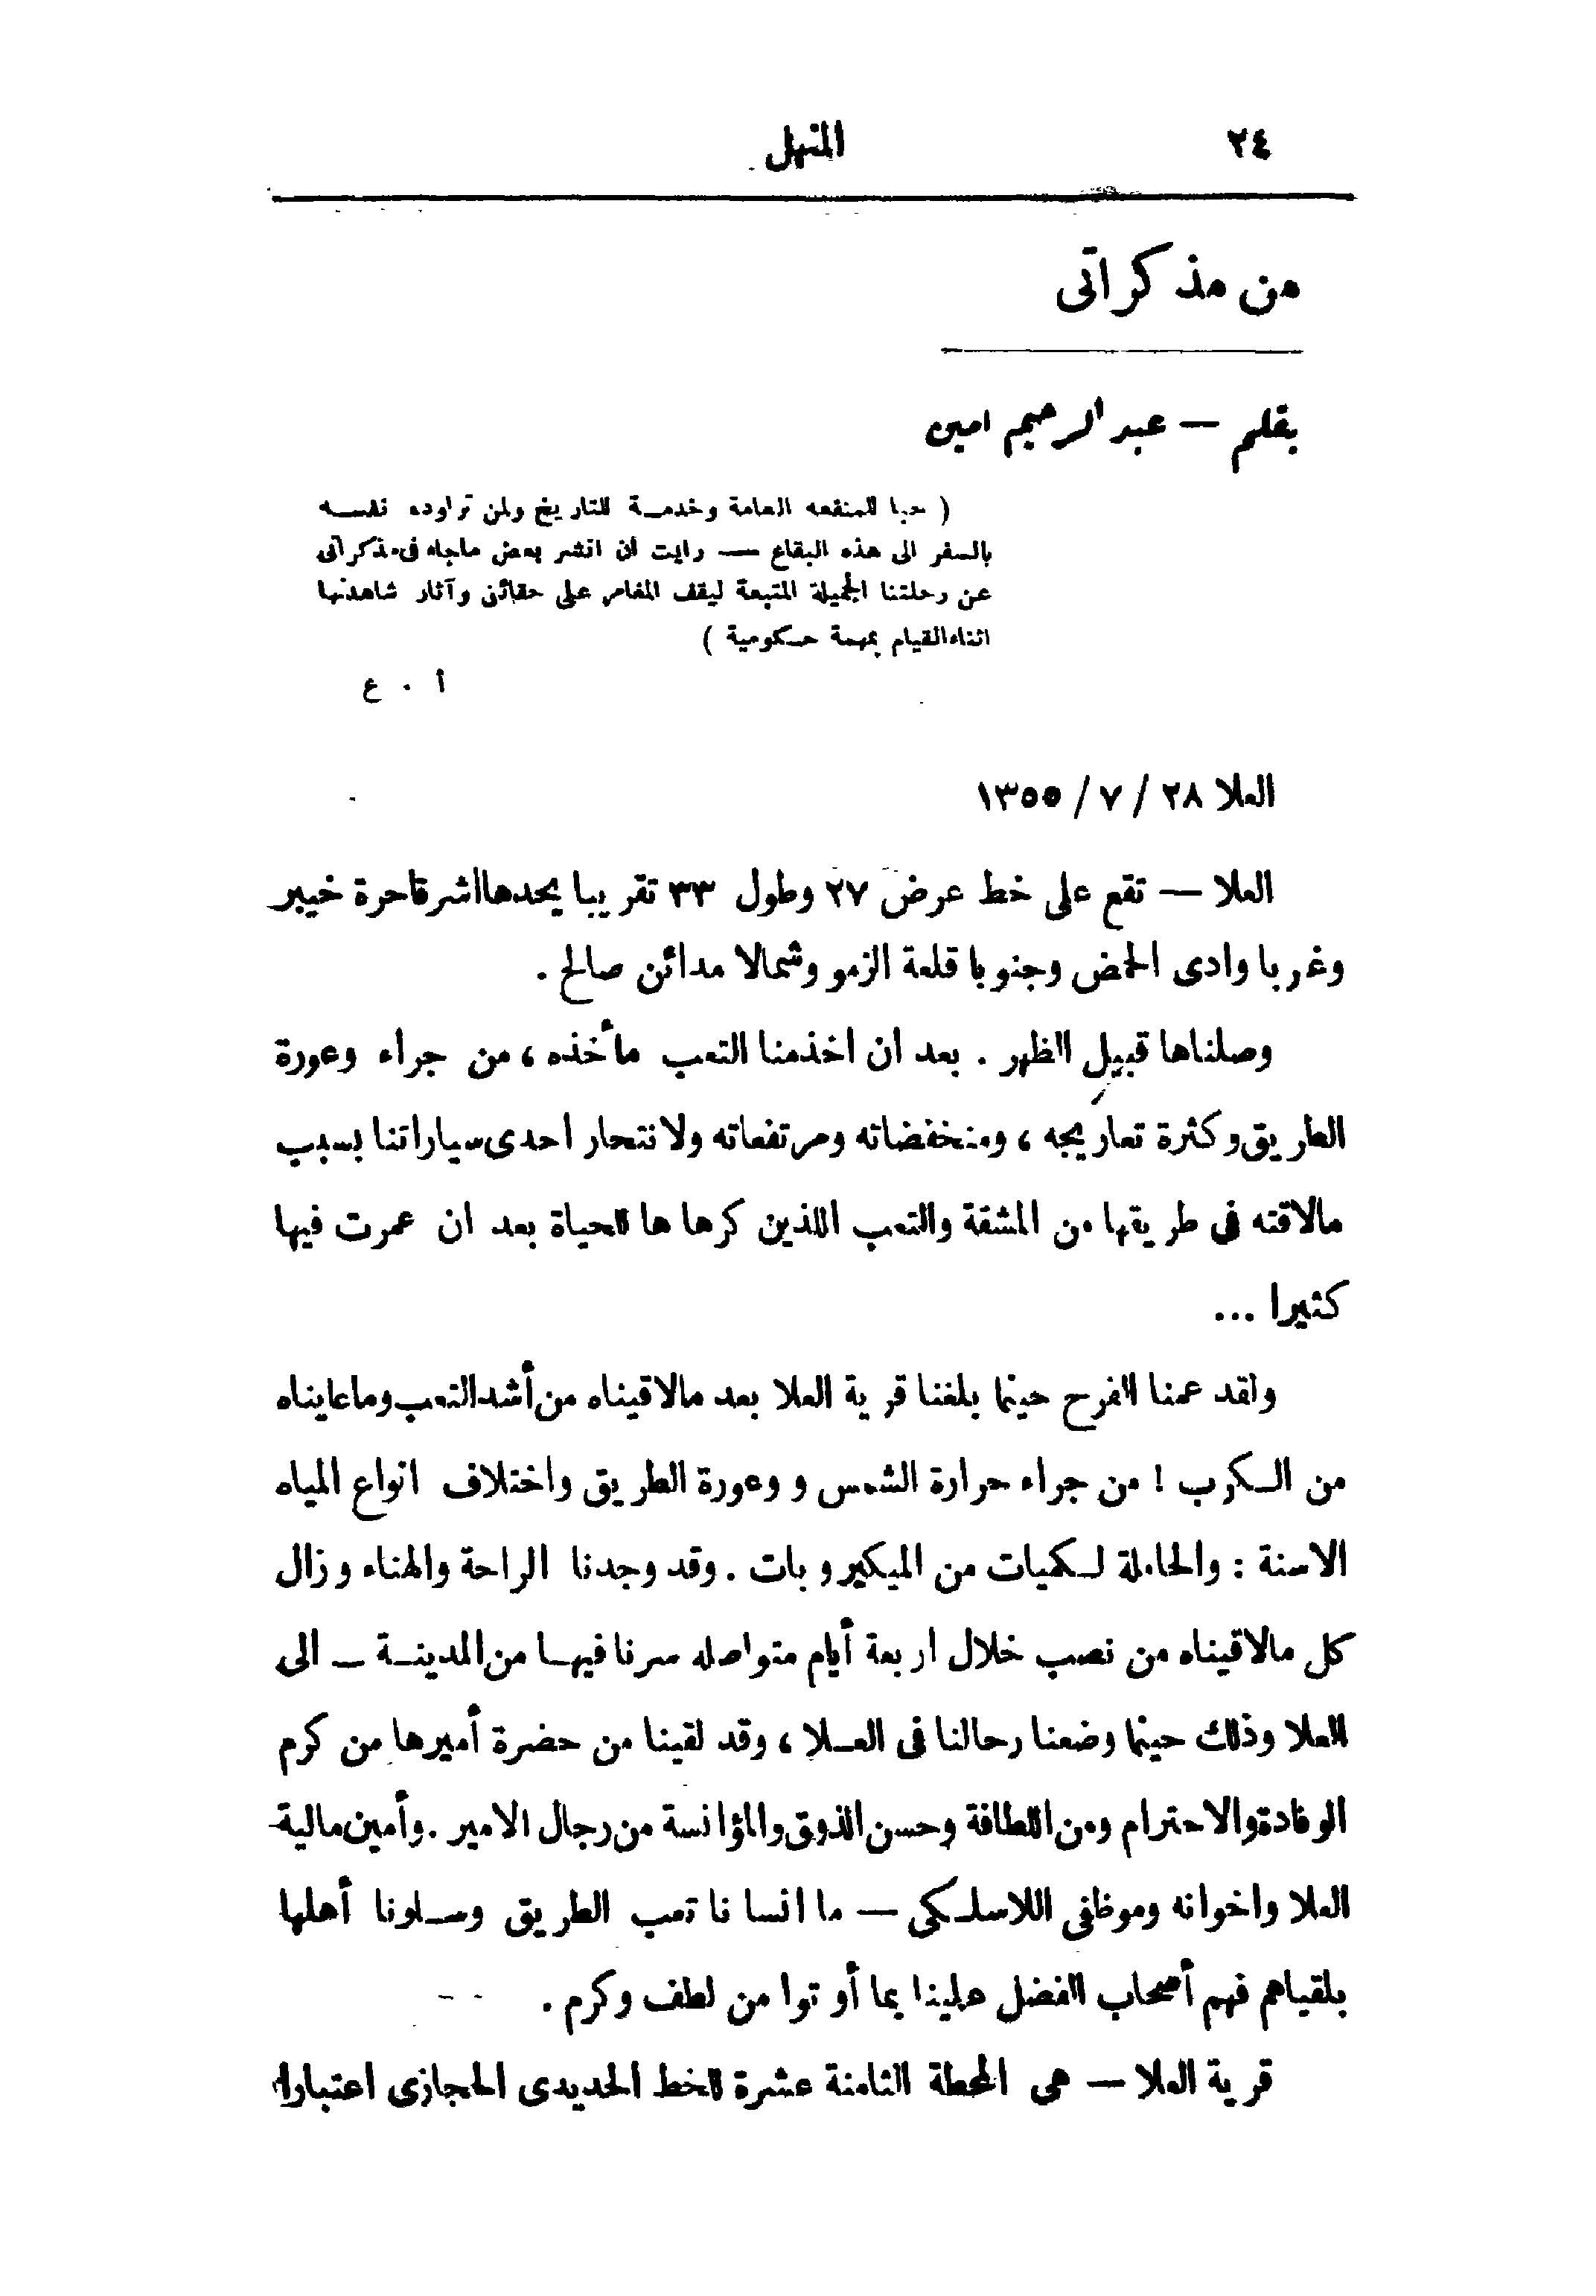 ٢٤
المنهل
من مذكراتى
بقلم — عبد الرحيم امين
( حبا للمنفعه العامة وخدمة للتاريخ ولمن تراوده نفسه
بالسفر الى هذه البقاع — رايت ان انشر بعض ماجاء فى مذكراتى
عن رحلتنا الجميلة المتبعة ليقف المغامر على حقائق وآثار شاهدتها
اثناء القيام بمهمة حكومية )
أ . ع
العلا ٢٨ / ٧ / ١٣٥٥
العلا — تقع على خط عرض ٢٧ وطول ٣٣ تقريبا يحدها شرقا حرة خيبر
وغربا وادى الحمض وجنوبا قلعة الزمو وشمالا مدائن صالح .
وصلناها قبيل الظهر . بعد ان اخذمنا التعب مأخذه ، من جراء وعورة
الطريق وكثرة تعاريجه ، ومنخفضاته ومرتفعاته ولانتحار احدى سياراتنا بسبب
مالاقته فى طريقها من المشقة والتعب اللذين كرها ها للحياة بعد ان عمرت فيها
كثيرا ...
ولقد عمنا الفرح حينما بلغنا قرية العلا بعد مالاقيناه من أشد التعب وماعايناه
من الكرب ! من جراء حرارة الشمس و وعورة الطريق واختلاف انواع المياه
الاسنة : والحاملة لكميات من الميكيروبات . وقد وجدنا الراحة والهناء وزال
كل مالاقيناه من نصب خلال اربعة أيام متواصله سرنا فيها من المدينة – الى
العلا وذلك حينما وضعنا رحالنا فى العلا ، وقد لقينا من حضرة أميرها من كرم
الوفادة والاحترام ومن اللطافة وحسن الذوق والمؤانسة من رجال الامير . وأمين مالية
العلا واخوانه وموظفى اللاسلكى — ما انسا نا تعب الطريق وسلونا أهلها
بلقياهم فهم أصحاب الفضل علينا بما أوتوا من لطف وكرم .
قرية العلا — هى المحطة الثامنة عشرة للخط الحديدى الحجازى اعتبارا